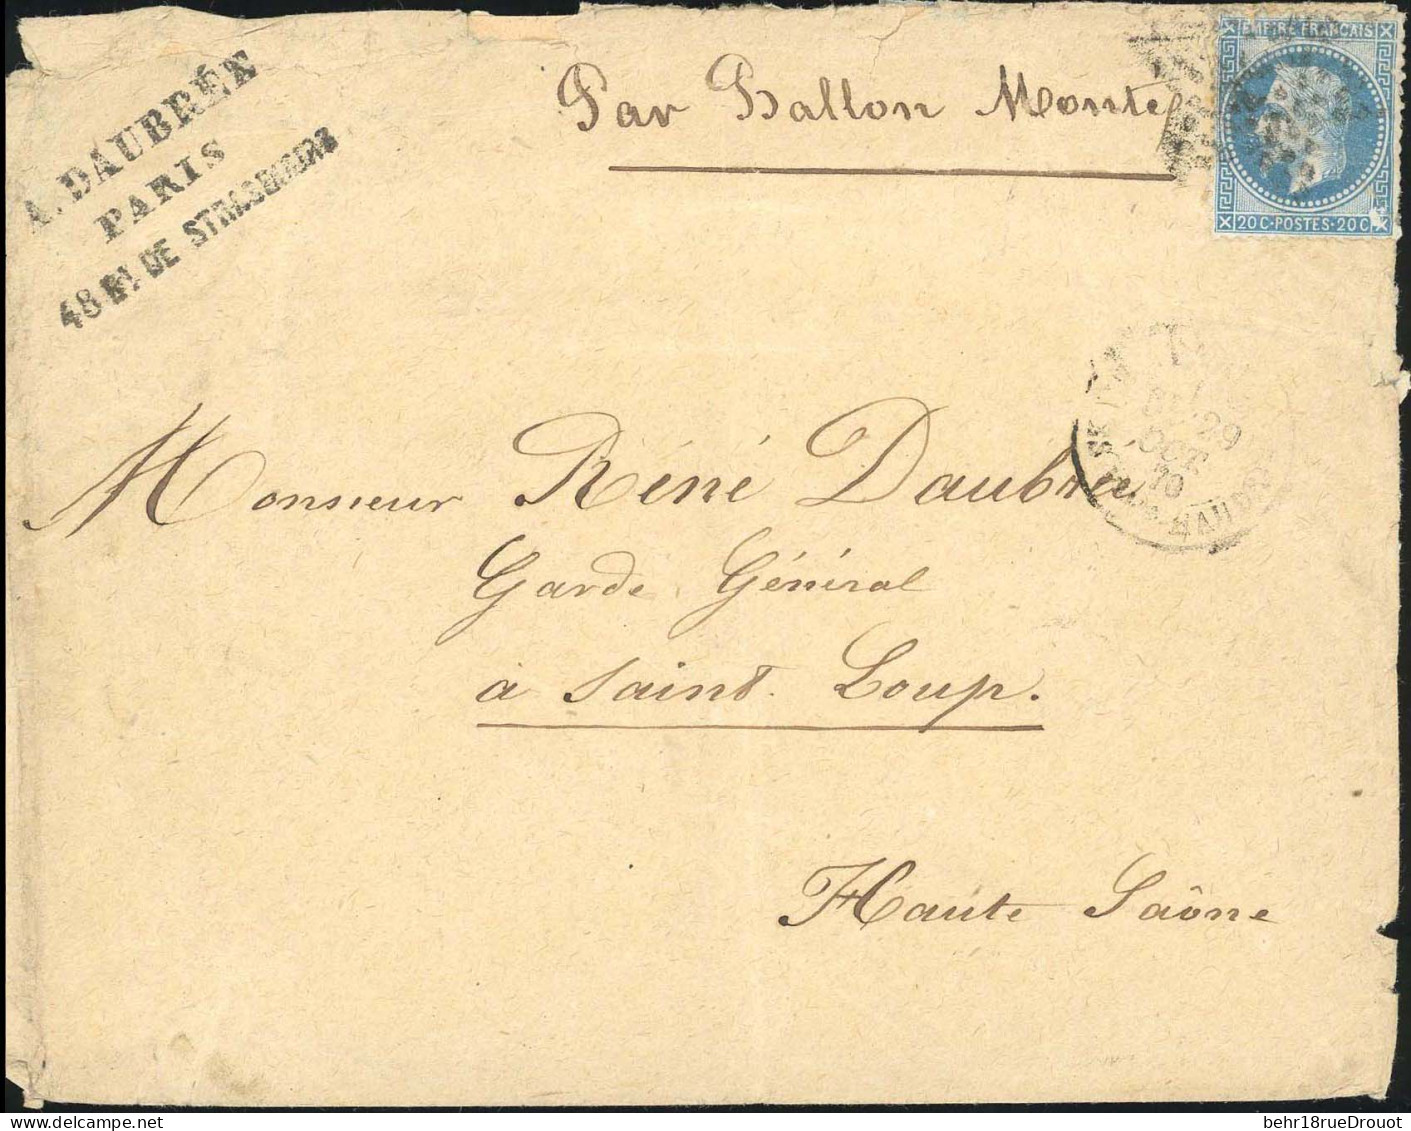 A. DAUBRÉE
PARIS
48 Bd. DE STRASBOURG
Par Ballon Monté
EMPIRE FRANÇAIS
20 C·POSTES·20 C
29
OCT
70
Monsieur Réné Daubrée
Garde Général
à Saint Loup.
Haute Saône
behr18rueDrouot